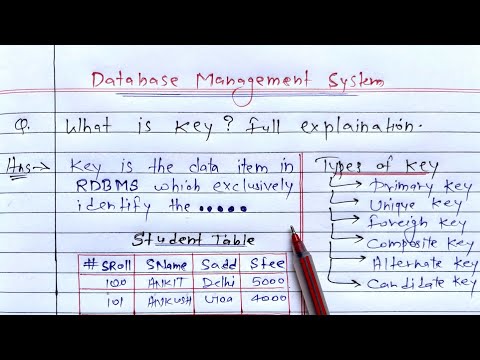 Database Management System
Q. What is key? full explaination.
Ans→ Key is the data item in
RDBMS which exclusively
identify the .....
Types of key
Primary key
Unique key
foreigh key
Composite key
Alternate key
Candidate key
Student Table
# SRoll SName Sadd Sfee
100 ANKIT Delhi 5000
101 ANKUSH 4000